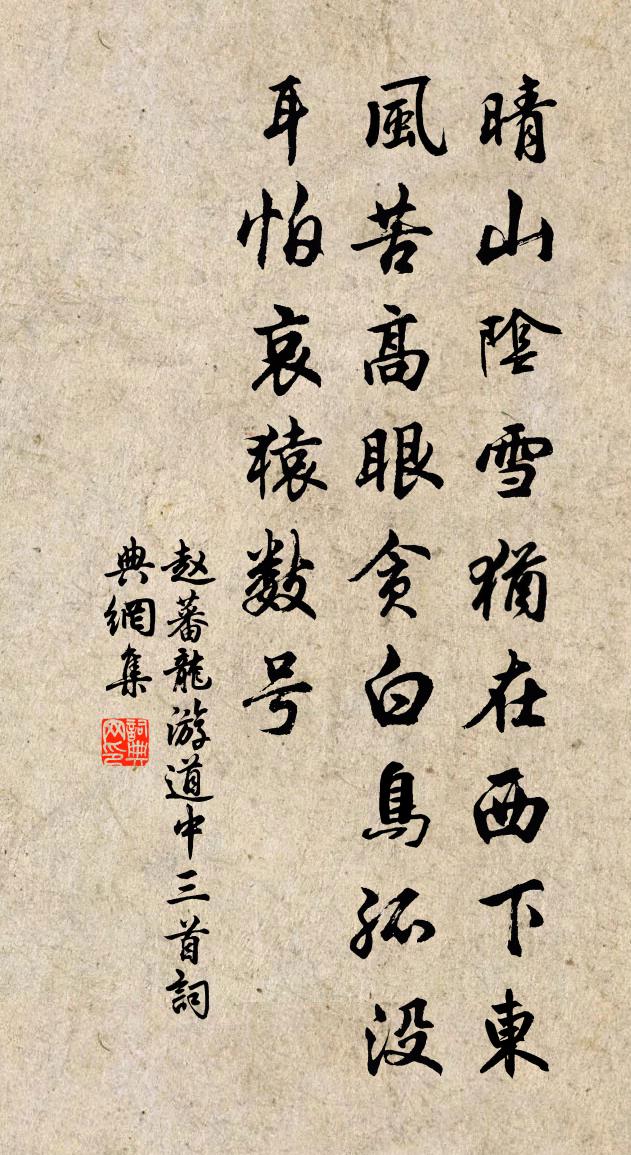 晴山陰雪猶在西下東
風苦高眼貪白鳥孤没
耳怕哀猿数号
赵蕃龍游道中三首詞
典網集
詞典网印